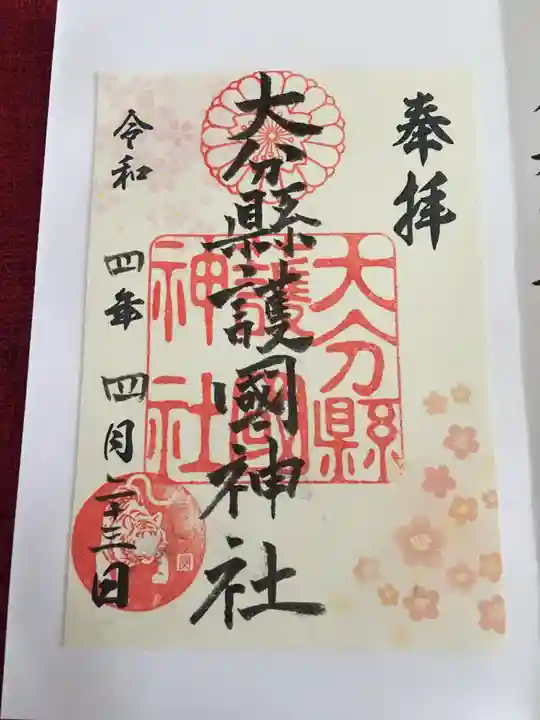 奉拝
大分縣護國神社
大分縣
護國
神社
令和 四年 四月二十三日